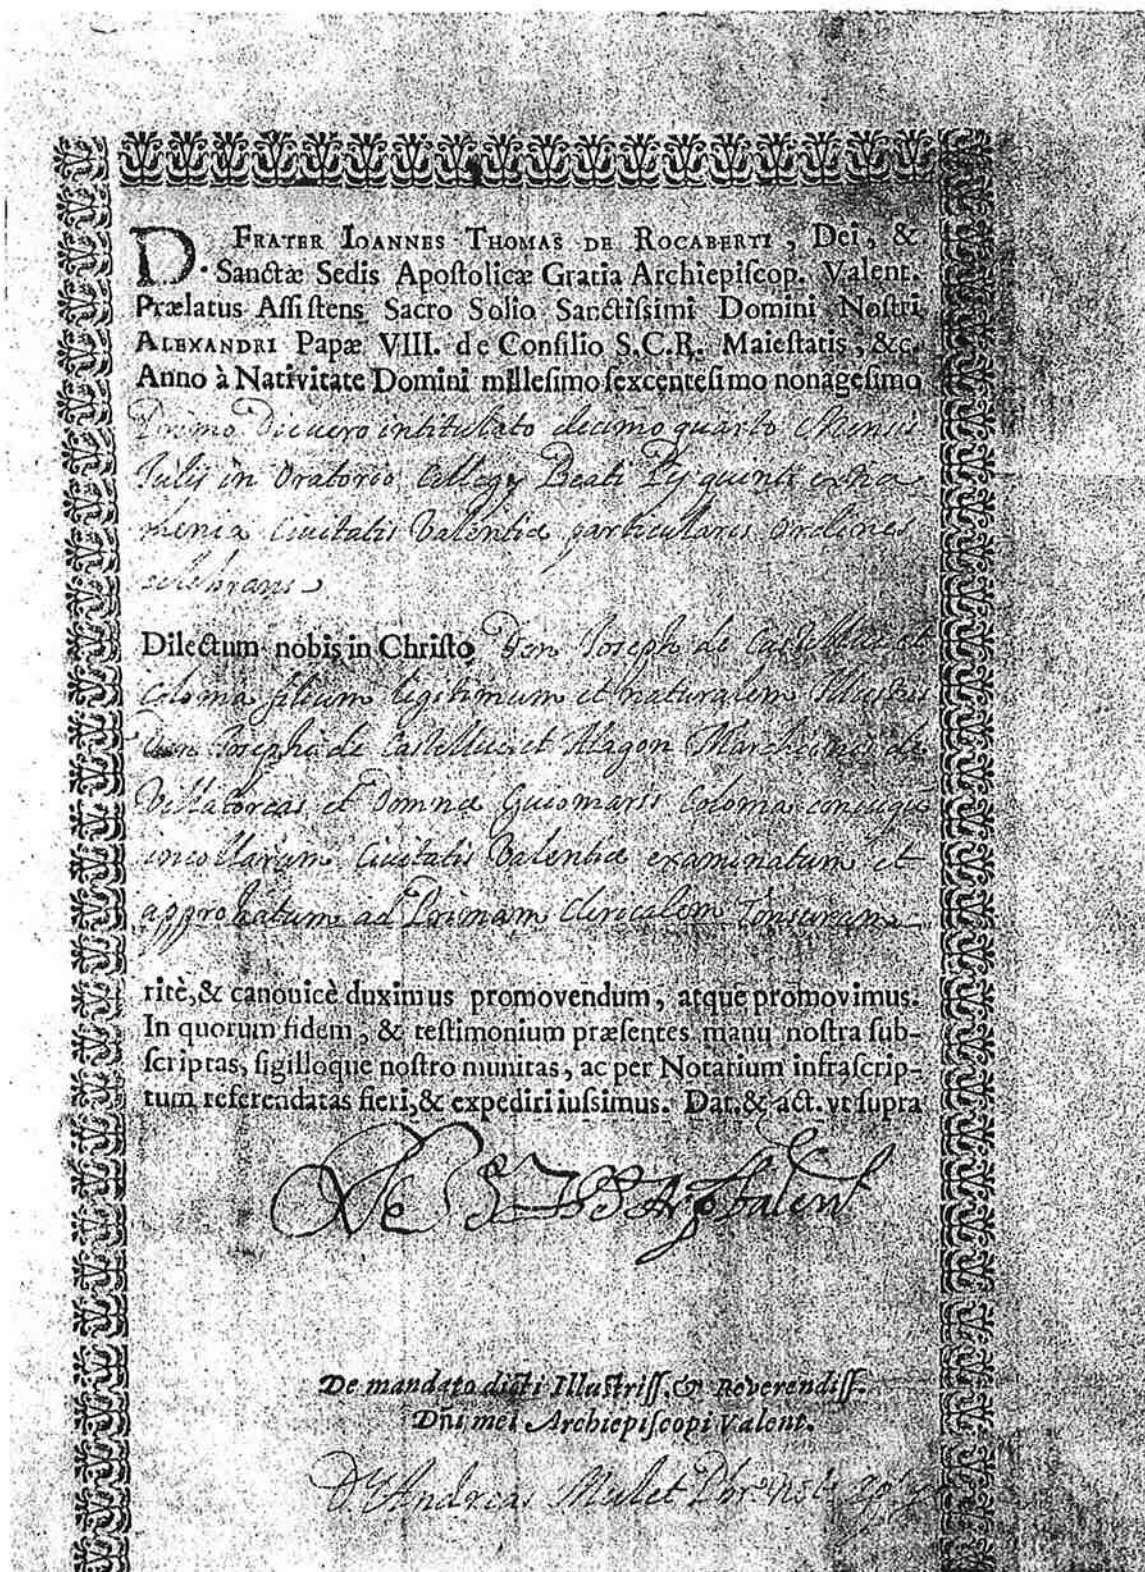 D. FRATER IOANNES THOMAS DE ROCABERTI, Dei, &
Sanctæ Sedis Apoſtolicæ Gratia Archiepiſcop. Valent.
Prælatus Aſſiſtens Sacro Solio Sanctiſsimi Domini Noſtri
ALEXANDRI Papæ VIII. de Conſilio S.C.R. Maieſtatis, &c.
Anno à Nativitate Domini milleſimo ſexcenteſimo nonageſimo
Primo Die vero intitullato decimo quarto Mensis
Julij in Oratorio Collegij Beati Pij quinti extra
menia Civitatis Valentiæ particulares ordines
celebrans
Dilectum nobis in Chriſto Don Joseph de Castellvi et
Coloma filium legitimum et naturalem Illustris
Don Josephi de Castellvi et Alagon Marchionis de
Villatorcas et Domnæ Guiomaris Coloma coniugũ
incollarum Civitatis Valentiæ examinatum et
approbatum ad Primam Clericalem Tonsuram
ritè, & canonicè duximus promovendum, atque promovimus.
In quorum fidem, & teſtimonium præſentes manu noſtra ſub-
ſcriptas, ſigilloque noſtro munitas, ac per Notarium infraſcrip-
tum referendatas fieri, & expediri iuſsimus. Dat. & act. vt ſupra
Valent
De mandato dicti Illuſtriſſ. & Reverendiſſ.
Dñi mei Archiepiſcopi Valent.
Dr Andreas Mulet Pbr